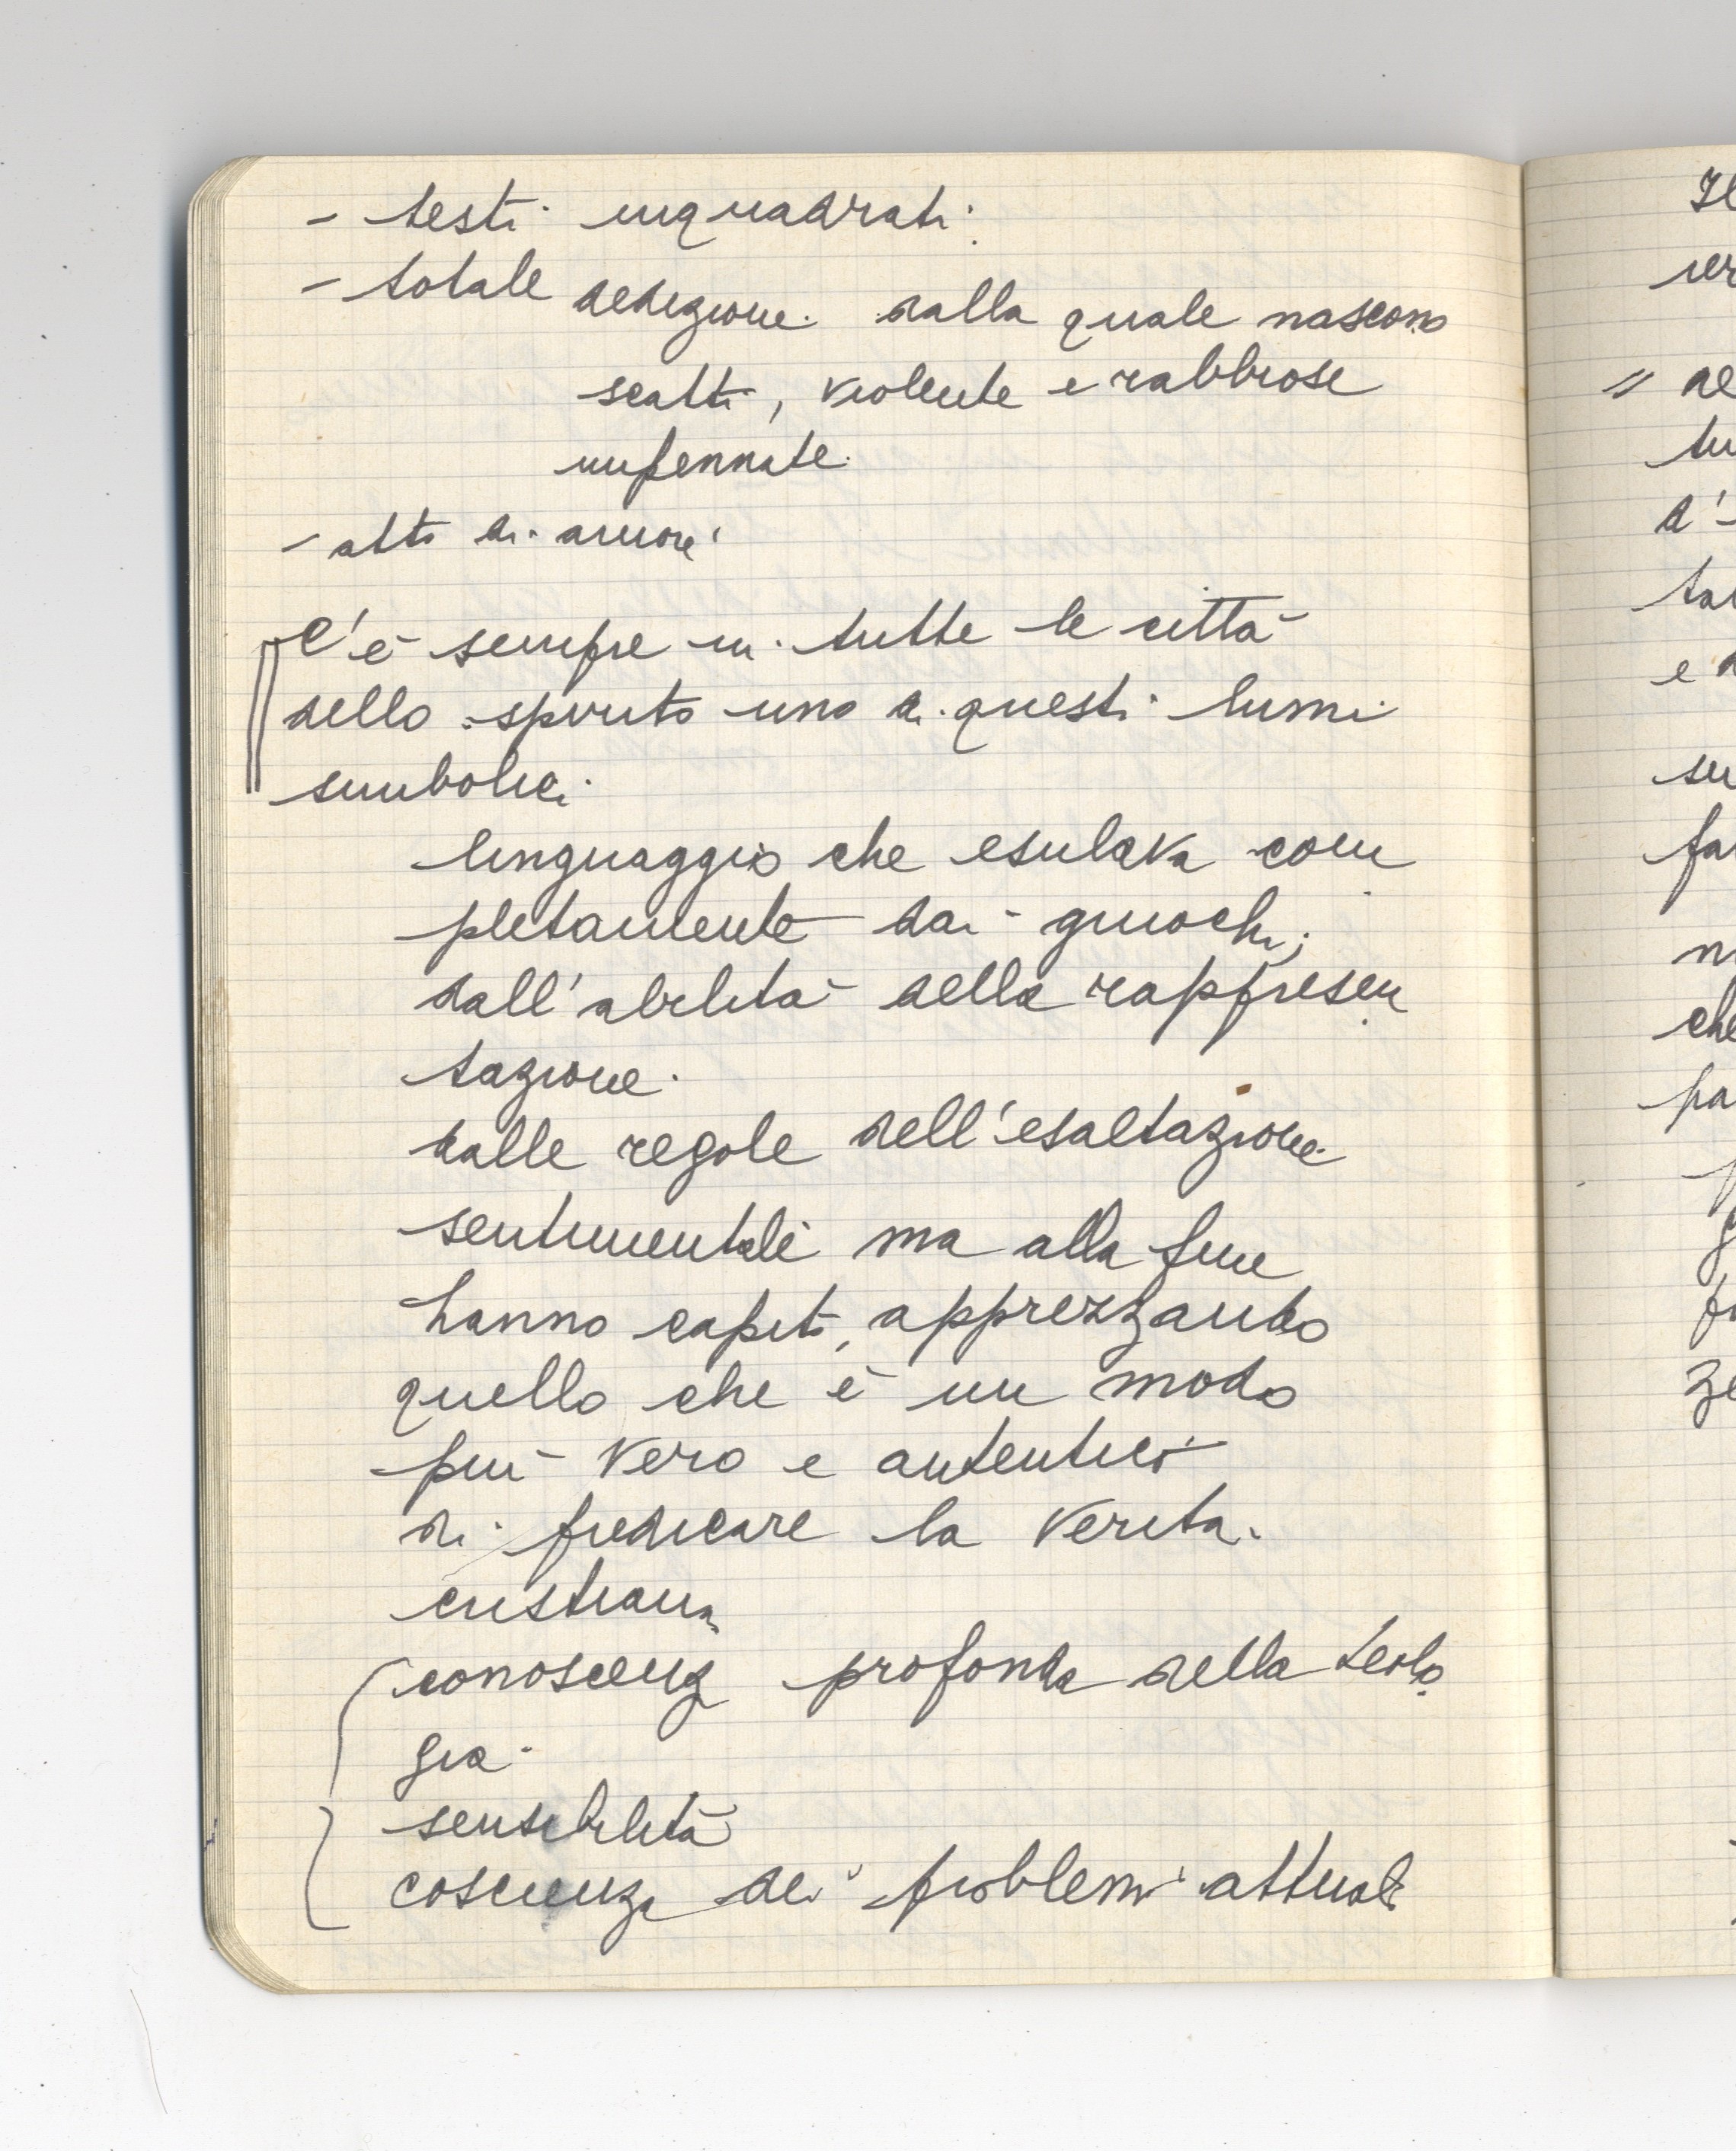 - testi inquadrati
- totale dedizione dalla quale nascono
scatti, violente e rabbiose
impennate.
- atti di amore
C'è sempre in tutte le città
dello spirito uno di questi lumi
simbolici.
linguaggio che esulava com
pletamente dai giuochi,
dall'abilità della rappresen
tazione.
dalle regole dell'esaltazione
sentimentale ma alla fine
hanno capito, apprezzando
quello che è un modo
più vero e autentico
di predicare la verità.
cristiana
conoscenza profonda della teolo
gia.
sensibilità
coscienza dei problemi attuali